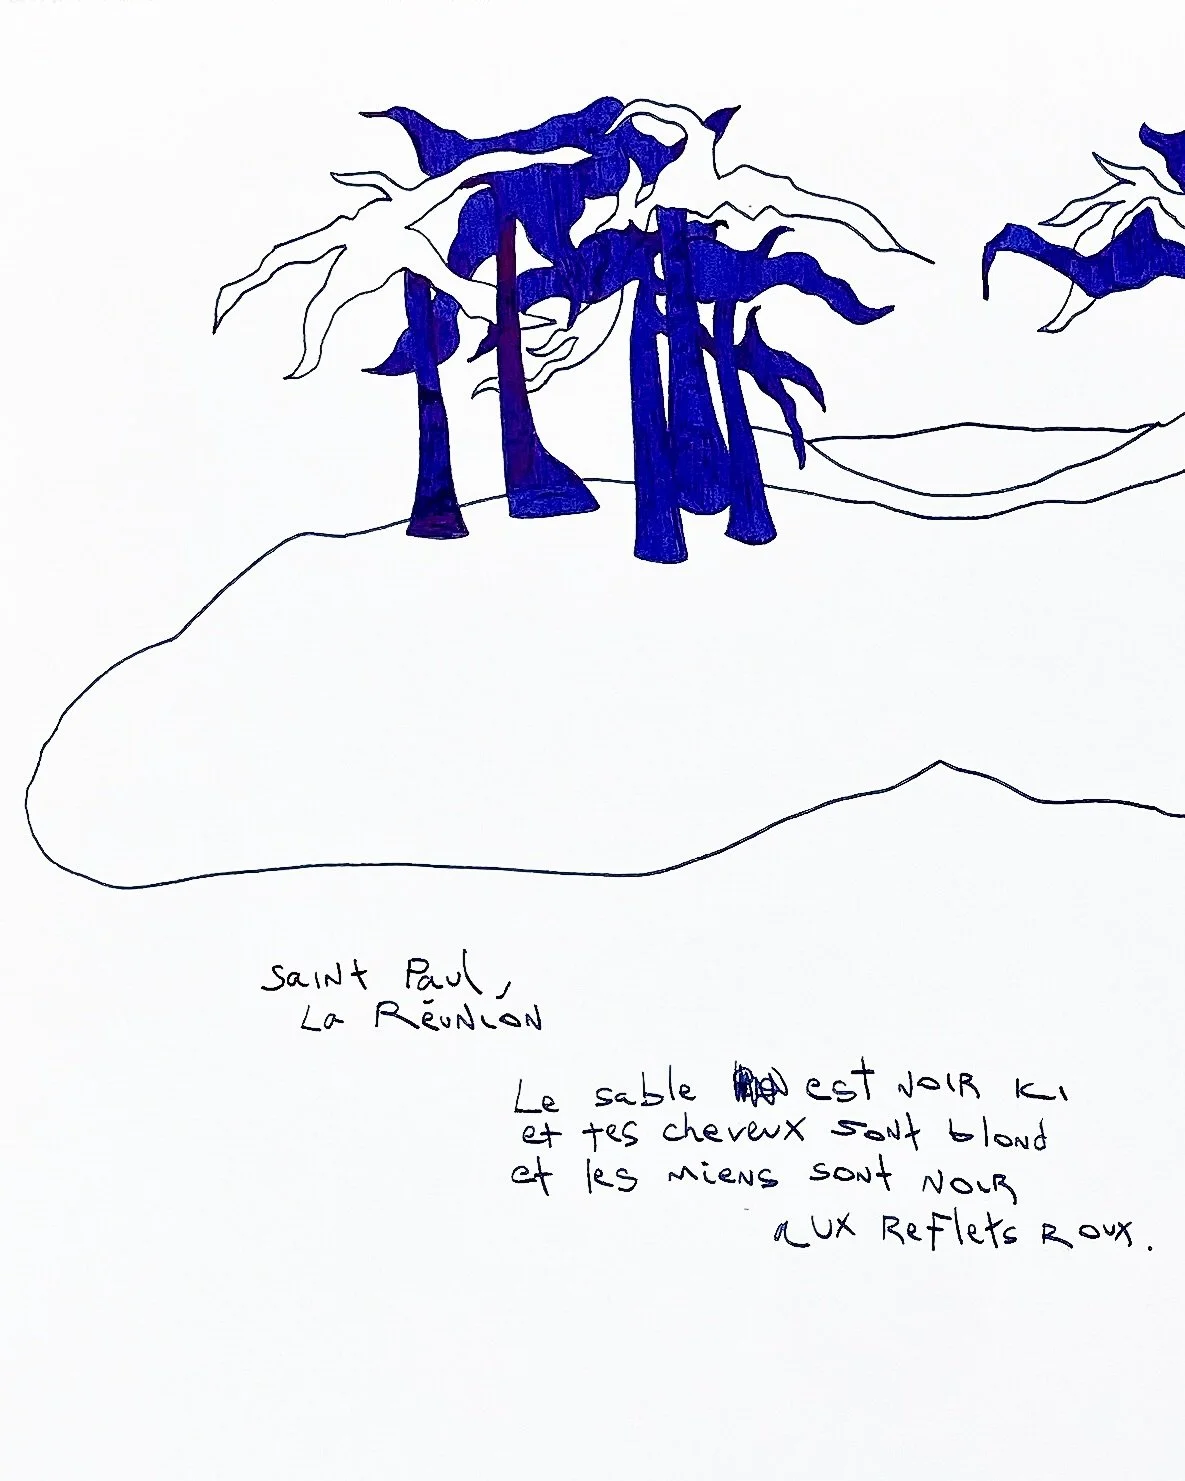 Saint Paul,
La Réunion
Le sable est noir ici
et tes cheveux sont blond
et les miens sont noir
aux reflets roux.